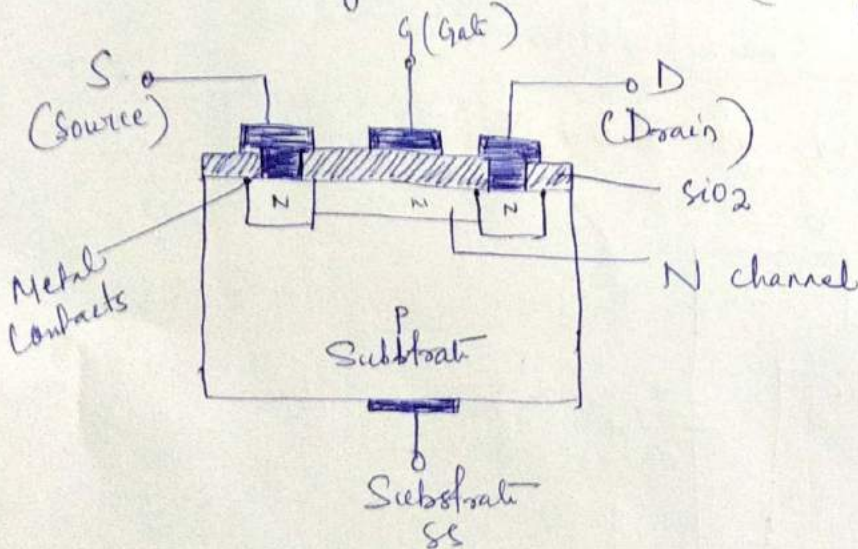 G (Gate)
S
(Source)
D
(Drain)
SiO2
N
N
N
N channel
Metal
Contacts
P
Substrate
Substrate
SS